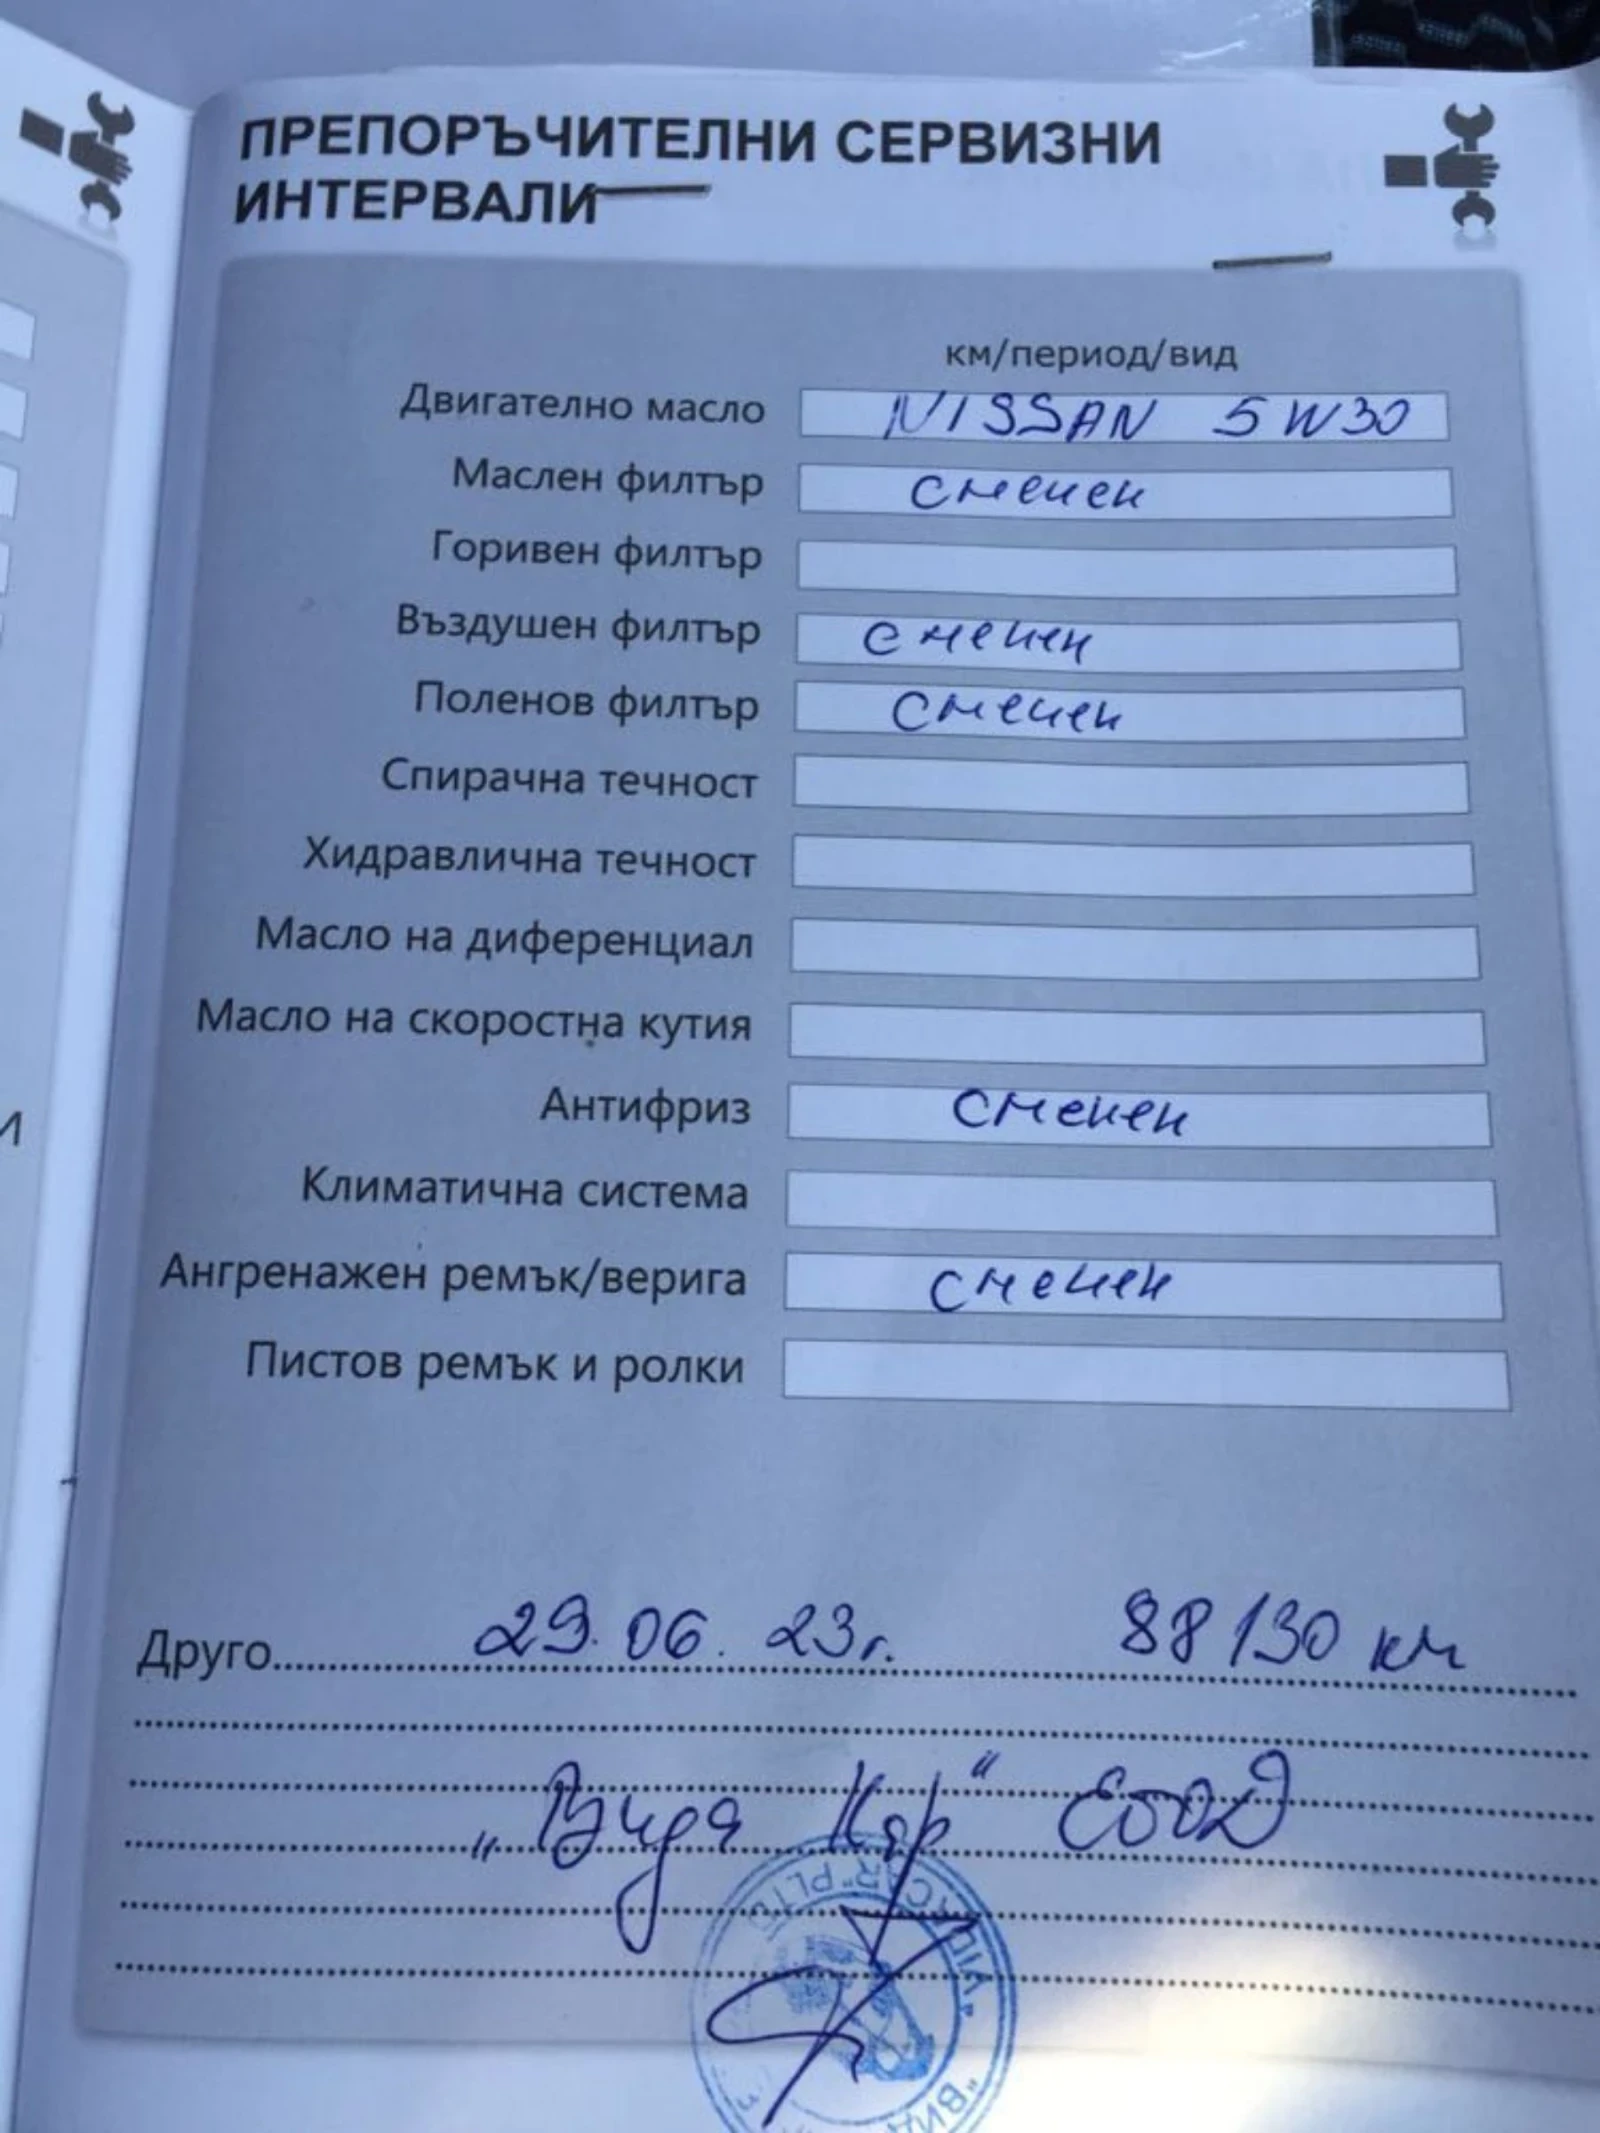 ПРЕПОРЪЧИТЕЛНИ СЕРВИЗНИ
ИНТЕРВАЛИ
км/период/вид
Двигателно масло NISSAN 5W30
Маслен филтър сменен
Горивен филтър
Въздушен филтър сменен
Поленов филтър сменен
Спирачна течност
Хидравлична течност
Масло на диференциал
Масло на скоростна кутия
Антифриз сменен
Климатична система
Ангренажен ремък/верига сменен
Пистов ремък и ролки
Друго 29.06.23г. 88130 км
„Вида Кар“ ЕООД